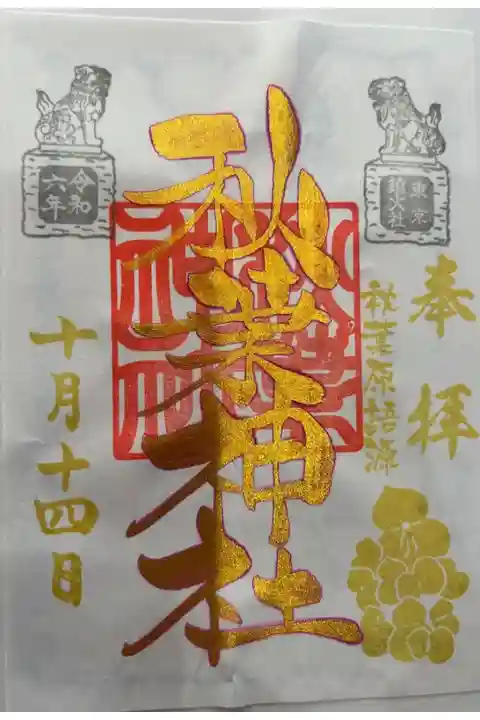 奉拝
秋葉原語源
東京鎮火社
秋葉神社
令和六年
十月十四日